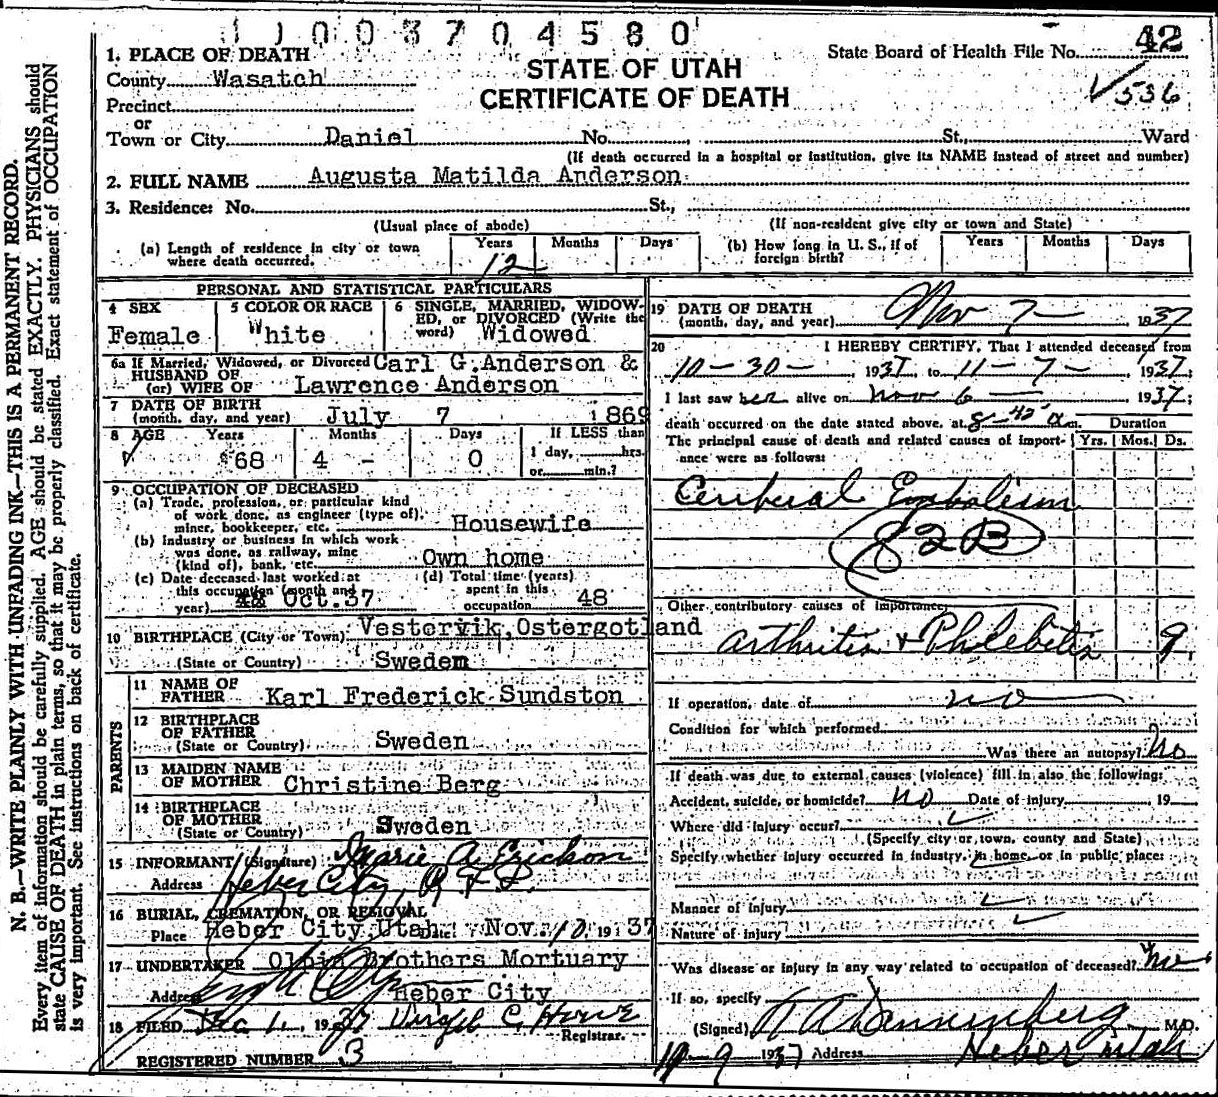 1 1 0 0 3 7 0 4 5 8 0
1. PLACE OF DEATH
State Board of Health File No. 42
STATE OF UTAH
County Wasatch
CERTIFICATE OF DEATH
√536
Precinct
or
Town or City Daniel No. St., Ward
(If death occurred in a hospital or institution, give its NAME instead of street and number)
2. FULL NAME Augusta Matilda Anderson
3. Residence: No. St.,
(Usual place of abode) (If non-resident give city or town and State)
(a) Length of residence in city or town where death occurred. Years 12 Months Days
(b) How long in U. S., if of foreign birth? Years Months Days
PERSONAL AND STATISTICAL PARTICULARS
4 SEX Female
5 COLOR OR RACE White
6 SINGLE, MARRIED, WIDOW-
ED, or DIVORCED (Write the
word) Widowed
6a If Married, Widowed, or Divorced Carl G. Anderson &
HUSBAND OF
(or) WIFE OF Lawrence Anderson
7 DATE OF BIRTH
(month, day, and year) July 7 1869
8 AGE Years Months Days If LESS than
68 4 - 0 1 day, hrs.
or min.?
9 OCCUPATION OF DECEASED
(a) Trade, profession, or particular kind
of work done, as engineer (type of),
miner, bookkeeper, etc. Housewife
(b) Industry or business in which work
was done, as railway, mine
(kind of), bank, etc. Own home
(c) Date deceased last worked at
this occupation (month and
year) Oct. 37
(d) Total time (years)
spent in this
occupation 48
10 BIRTHPLACE (City or Town) Vestervik, Ostergotland
(State or Country) Sweden
PARENTS
11 NAME OF
FATHER Karl Frederick Sundston
12 BIRTHPLACE
OF FATHER
(State or Country) Sweden
13 MAIDEN NAME
OF MOTHER Christine Berg
14 BIRTHPLACE
OF MOTHER
(State or Country) Sweden
15 INFORMANT (Signature) Marie A. Erickson
Address Heber City, R.F.D.
16 BURIAL, CREMATION, OR REMOVAL
Place Heber City Utah Date Nov. 10 1937
17 UNDERTAKER Olpin Brothers Mortuary
Address Heber City
18 FILED Dec 1, 1937 Virgil C. Horne
Registrar.
REGISTERED NUMBER 3
19 DATE OF DEATH
(month, day, and year) Nov 7 - 1937
20 I HEREBY CERTIFY, That I attended deceased from
10-30- 1937, to 11-7- 1937;
I last saw her alive on Nov 6 - 1937;
death occurred on the date stated above, at 8-42 a m. Duration
The principal cause of death and related causes of import- Yrs. Mos. Ds.
ance were as follows:
Ceribral Embolism
82B
Other contributory causes of importance:
Arthritis + Phlebitis 9.
If operation, date of no
Condition for which performed
Was there an autopsy? No
If death was due to external causes (violence) fill in also the following:
Accident, suicide, or homicide? no Date of injury , 19
Where did injury occur?
(Specify city or town, county and State)
Specify whether injury occurred in industry, in home, or in public place:
Manner of injury
Nature of injury
Was disease or injury in any way related to occupation of deceased? No
If so, specify
(Signed) Dannenberg M.D.
1937 Address Heber Utah
N. B.—WRITE PLAINLY WITH UNFADING INK—THIS IS A PERMANENT RECORD.
Every item of information should be carefully supplied. AGE should be stated EXACTLY. PHYSICIANS should
state CAUSE OF DEATH in plain terms, so that it may be properly classified. Exact statement of OCCUPATION
is very important. See instructions on back of certificate.